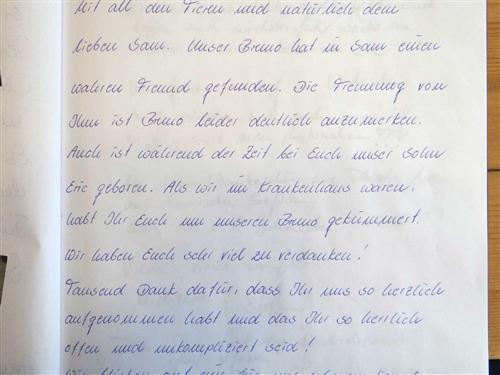 Mit all den Tieren und natürlich dem
lieben Sam. Unser Bruno hat in Sam einen
wahren Freund gefunden. Die Trennung von
Ihm ist Bruno leider deutlich anzumerken.
Auch ist während der Zeit bei Euch unser Sohn
Eric geboren. Als wir im Krankenhaus waren,
habt Ihr Euch um unseren Bruno gekümmert.
Wir haben Euch sehr viel zu verdanken!
Tausend Dank dafür, dass Ihr uns so herzlich
aufgenommen habt und das Ihr so herrlich
offen und unkompliziert seid!